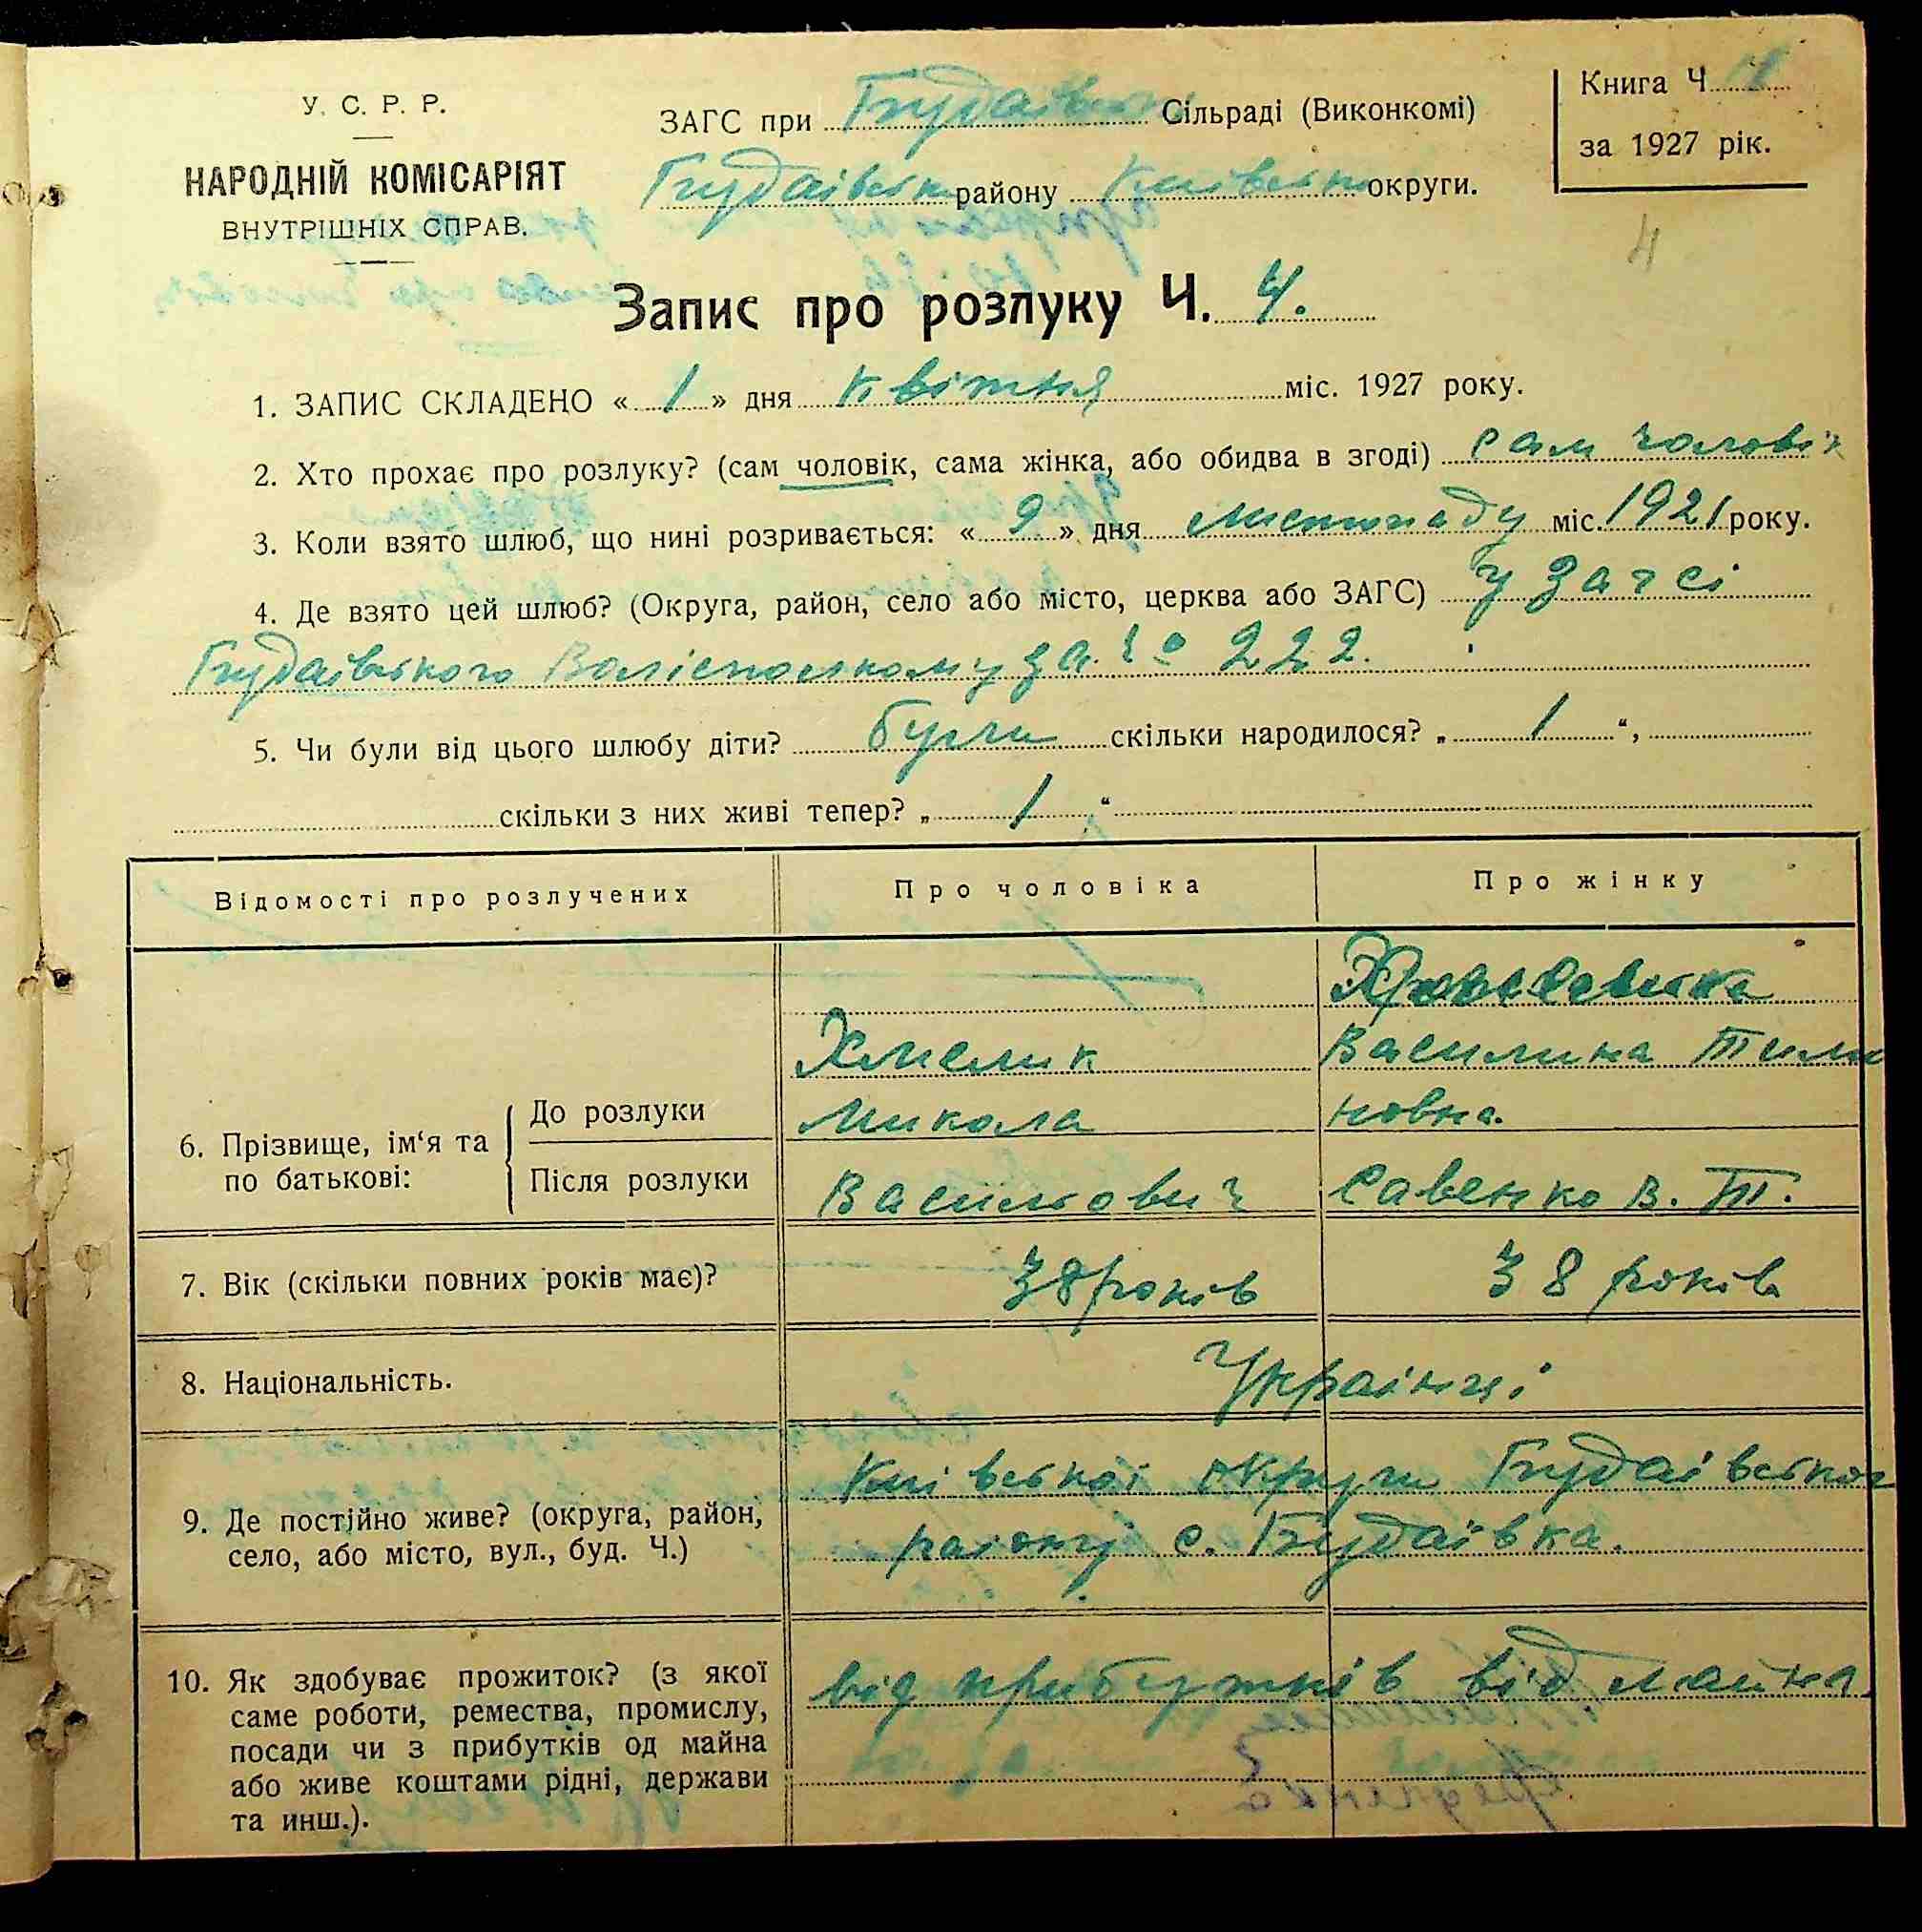 У. С. Р. Р.
НАРОДНІЙ КОМІСАРІЯТ
ВНУТРІШНІХ СПРАВ.
ЗАГС при Будаївськ Сільраді (Виконкомі)
Будаївськ району Київськ округи.
Книга Ч
за 1927 рік.
4
Запис про розлуку Ч. 4.
1. ЗАПИС СКЛАДЕНО « 1 » дня квітня міс. 1927 року.
2. Хто прохає про розлуку? (сам чоловік, сама жінка, або обидва в згоді) сам чоловік
3. Коли взято шлюб, що нині розривається: « 9 » дня листопаду міс. 1921 року.
4. Де взято цей шлюб? (Округа, район, село або місто, церква або ЗАГС) у Загсі
Будаівського за 222.
5. Чи були від цього шлюбу діти? були скільки народилося? „ 1 “,
скільки з них живі тепер? „ 1 “
Відомості про розлучених
Про чоловіка
Про жінку
6. Прізвище, ім‘я та по батькові:
До розлуки
Після розлуки
Хмелик
Микола
Васильович
Василина Тимо
новна.
Савенко В. Т.
7. Вік (скільки повних років має)?
38 років
38 років
8. Національність.
Українці
9. Де постійно живе? (округа, район,
село, або місто, вул., буд. Ч.)
Київської округи Будаівського
району с. Будаївка.
10. Як здобуває прожиток? (з якої
саме роботи, ремества, промислу,
посади чи з прибутків од майна
або живе коштами рідні, держави
та инш.).
від прибутків від майна.